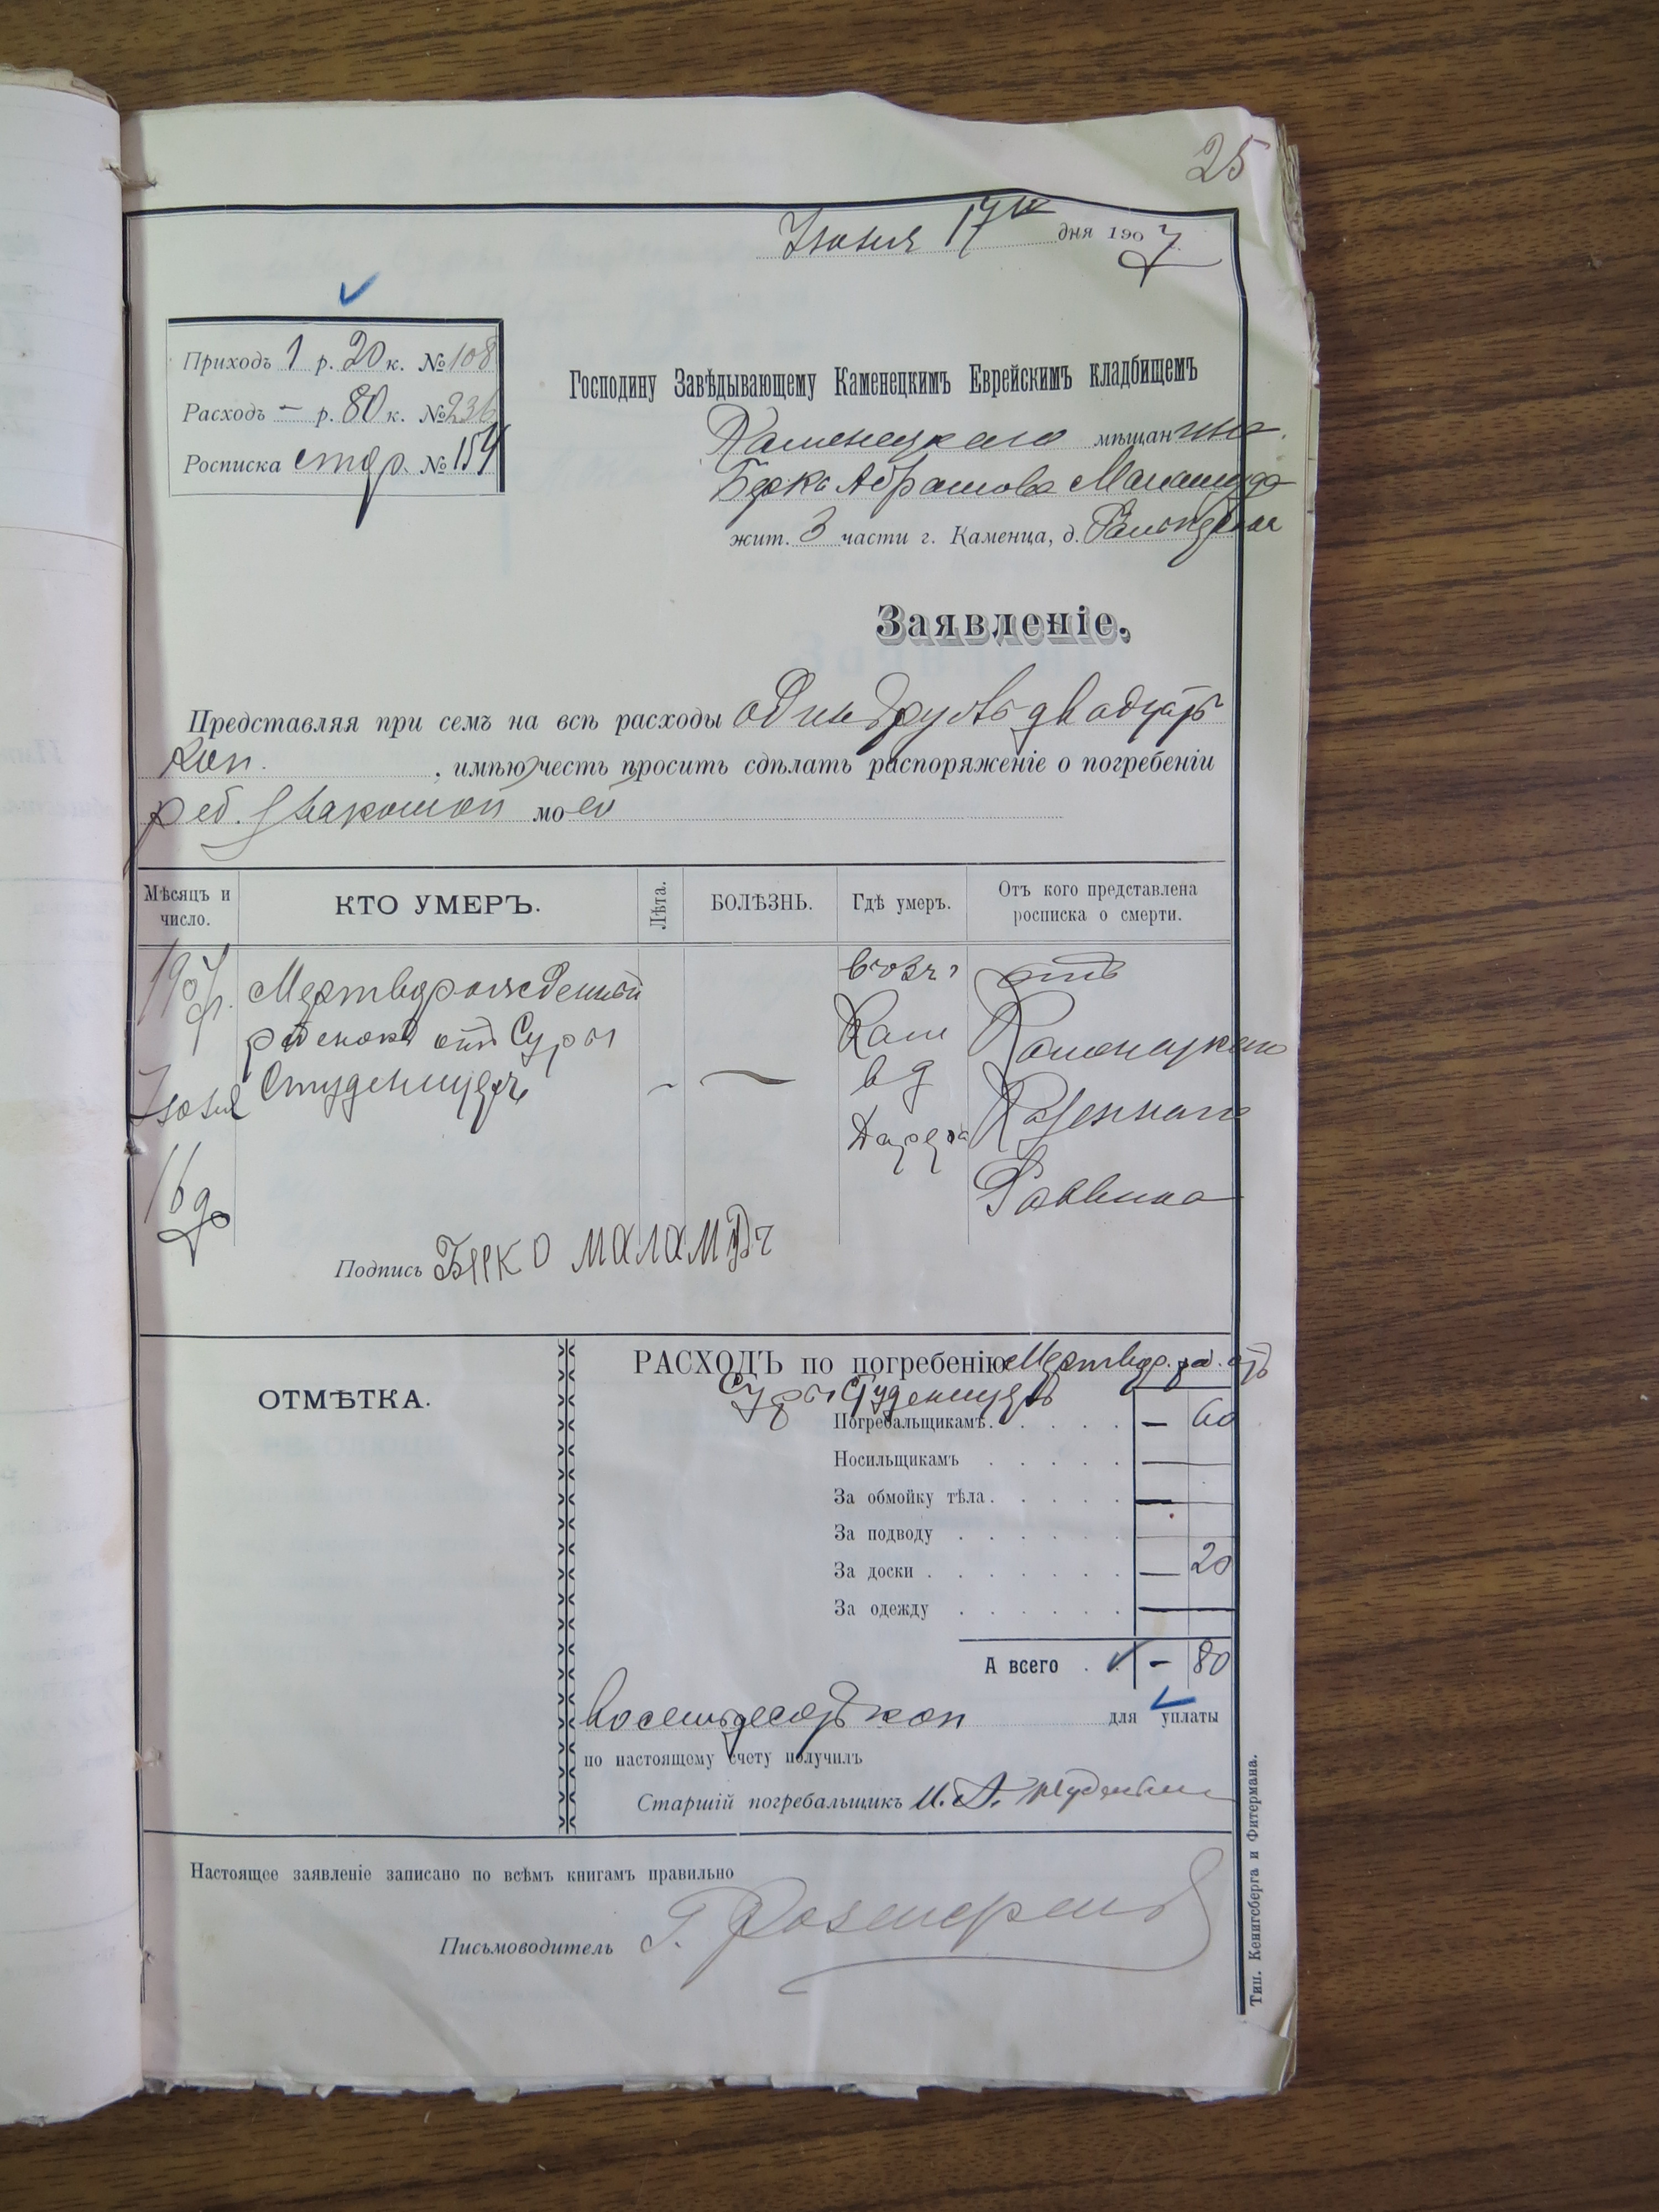 25
Іюня 17го дня 1907
Приходъ 1 р. 20 к. № 108
Расходъ — р. 80 к. № 236
Росписка стор. № 154
Господину Завѣдывающему Каменецкимъ Еврейскимъ кладбищемъ
Каменецкаго мѣщанина
Берко Абрамова Маламуда
жит. 3 части г. Каменца, д.
Заявленіе.
Представляя при семъ на всѣ расходы одинъ рубль двадцать
коп. , имѣю честь просить сдѣлать распоряженіе о погребеніи
реб. знакомой моей
Мѣсяцъ и число.
КТО УМЕРЪ.
Лѣта.
БОЛѢЗНЬ.
Гдѣ умеръ.
Отъ кого представлена росписка о смерти.
1907 г.
Іюня
16 д.
Мертворожденный
ребенокъ отъ Суры
Студеницеръ
— —
Кам
в д
отъ
Каменецкаго
Казеннаго
Раввина
Подпись Берко маламудъ
ОТМѢТКА.
РАСХОДЪ по погребенію Мертвор. реб. отъ
Суры Студеницеръ
Погребальщикамъ . . . . — 60
Носильщикамъ . . . . . —
За обмойку тѣла . . . . . —
За подводу . . . . . .
За доски . . . . . . . — 20
За одежду . . . . . . —
А всего . . — 80
восемьдесятъ коп для уплаты
по настоящему счету получилъ
Старшій погребальщикъ И. А.
Настоящее заявленіе записано по всѣмъ книгамъ правильно
Письмоводитель Г.
Тип. Кенигсберга и Фитермана.